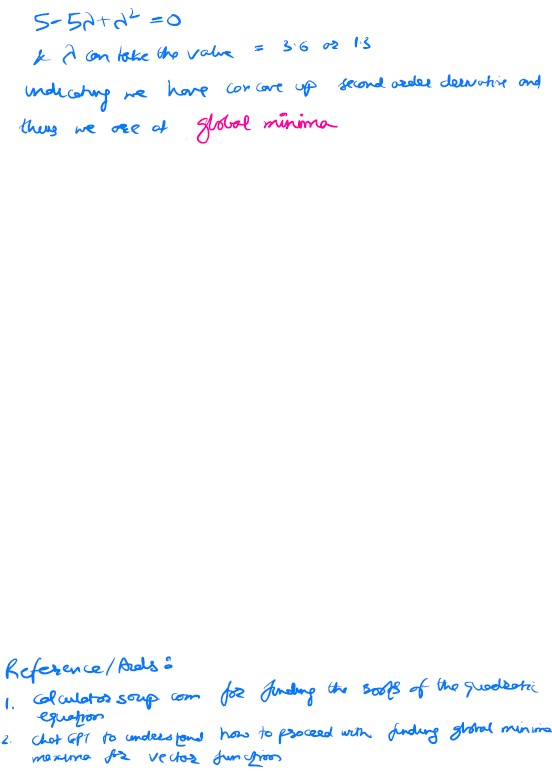 5 - 5λ + λ² = 0
& λ can take the value = 3.6 or 1.3
indicating we have concave up second order derivative and
thus we are at global minima
Reference/Aids:
1. calculator soup com for finding the roots of the quadratic
equation
2. chat GPT to understand how to proceed with finding global minima
maxima for vector function